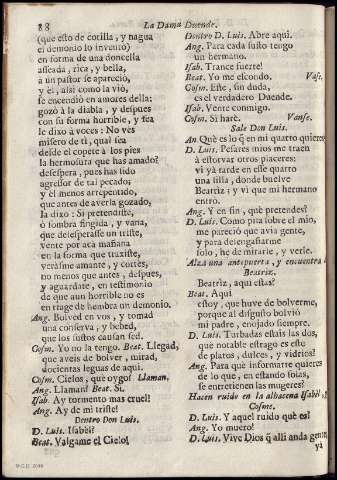 88
La Dama Duende.
(que esto de cotilla, y nagua
el demonio lo invento)
en forma de una doncella
asseada, rica, y bella,
à un pastor se apareciò,
y èl, assi como la viò,
se encendiò en amores della:
gozò à la diabla, y despues
con su forma horrible, y fea
le dixo à voces: No ves
misero de ti, qual sea
desde el copete à los pies
la hermosura que has amado?
desespera, pues has sido
agressor de tal pecado;
y èl menos arrepentido,
que antes de averla gozado,
la dixo: Si pretendiste,
ò sombra fingida, y vana,
que desesperasse un triste,
vente por acà mañana
en la forma que traxiste,
verasme amante, y cortès,
no menos que antes, despues,
y aguardate, en testimonio
de que aun horrible no es
en trage de hembra un demonio.
Ang. Bolved en vos, y tomad
una conserva, y bebed,
que los sustos causan sed.
Cosm. Yo no la tengo. Beat. Llegad,
que aveis de bolver, mirad,
docientas leguas de aqui.
Cosm. Cielos, què oygo! Llaman.
Ang. Llaman? Beat. Si.
Isab. Ay tormento mas cruel!
Ang. Ay de mi triste!
Dentro Don Luis.
D. Luis. Isabèl?
Beat. Valgame el Cielo!
Dentro D. Luis. Abre aqui.
Ang. Para cada susto tengo
un hermano.
Isab. Trance fuerte!
Beat. Yo me escondo. Vase.
Cosm. Este, sin duda,
es el verdadero Duende.
Isab. Vente conmigo.
Cosm. Sì harè. Vanse.
Sale Don Luis.
An Què es lo q̃ en mi quarto quieres?
D. Luis. Pesares mios me traen
à estorvar otros placeres:
vi yà tarde en esse quarto
una silla, donde buelve
Beatriz; y vì que mi hermano
entro.
Ang. Y en fin, què pretendes?
D. Luis. Como pisa sobre el mio,
me pareciò que avia gente,
y para desengañarme
solo, he de mirarle, y verle.
Alza una antepuerta, y encuentra à
Beatriz.
Beatriz, aqui estàs?
Beat. Aqui
estoy, que huve de bolverme,
porque al disgusto bolviò
mi padre, enojado siempre.
D. Luis. Turbadas estais las dos,
què notable estrago es este
de platos, dulces, y vidrios?
Ang. Para què informarte quieres
de lo que, en estando solas,
se entretienen las mugeres?
Hacen ruido en la alhacena Isabèl, y
Cosme.
D. Luis. Y aquel ruido què es?
Ang. Yo muero!
D. Luis. Vive Dios q̃ alli anda gente,
ya